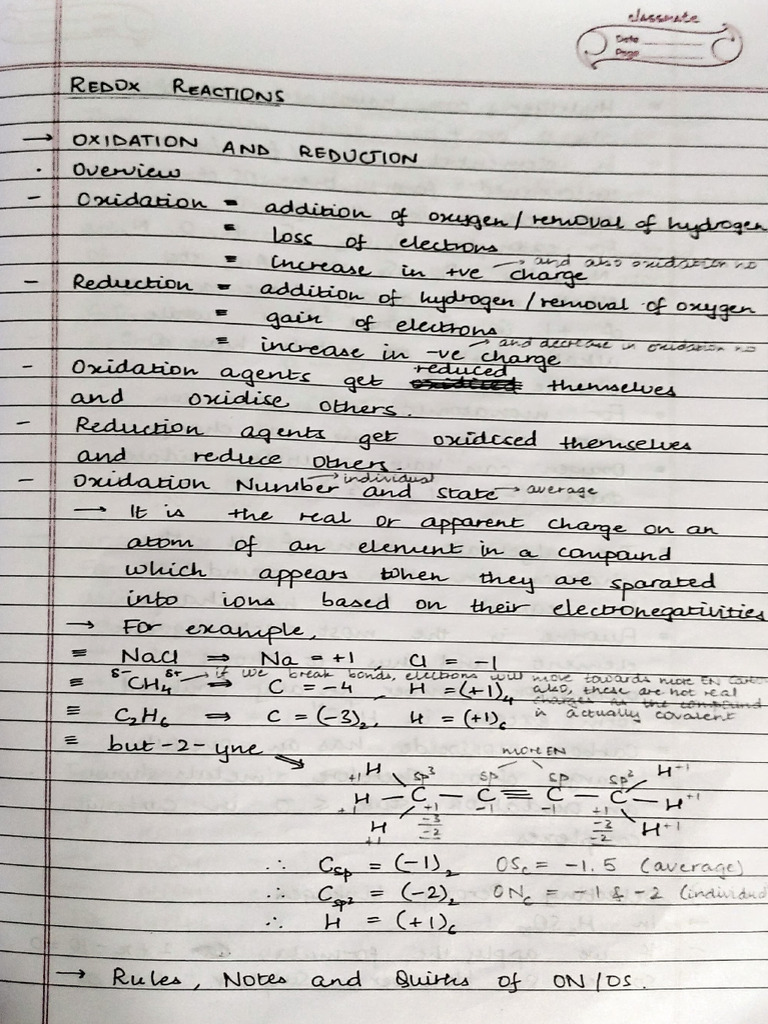 classmate
Date
Page
REDOX REACTIONS
→ OXIDATION AND REDUCTION
· Overview
- Oxidation = addition of oxygen / removal of hydrogen
= Loss of electrons
= increase in +ve charge → and also oxidation no
- Reduction = addition of hydrogen / removal of oxygen
= gain of electrons
= increase in -ve charge → and decrease in oxidation no
- Oxidation agents get reduced themselves
and oxidise others.
- Reduction agents get oxidised themselves
and reduce others.
- Oxidation Number → individual and state → average
→ It is the real or apparent charge on an
atom of an element in a compound
which appears when they are sparated
into ions based on their electronegativities
→ For example,
≡ NaCl ⇒ Na = +1, Cl = -1
δ- δ+ → if we break bonds, electrons will move towards more EN carbon
≡ CH₄ ⇒ C = -4, H = (+1)₄ also, these are not real
charges as the compound
≡ C₂H₆ ⇒ C = (-3)₂, H = (+1)₆ is actually covalent
≡ but-2-yne ⇒ more EN
+1 H sp³ sp sp sp² H +1
+1 H — C — C ≡ C — C — H +1
+1 -1 -1 +1
H -3 -3 H +1
+1 -2 -2
∴ Csp = (-1)₂ OSc = -1.5 (average)
∴ Csp² = (-2)₂ ONc = -1 & -2 (individual
∴ H = (+1)₆
→ Rules, Notes and Quirks of ON/OS.